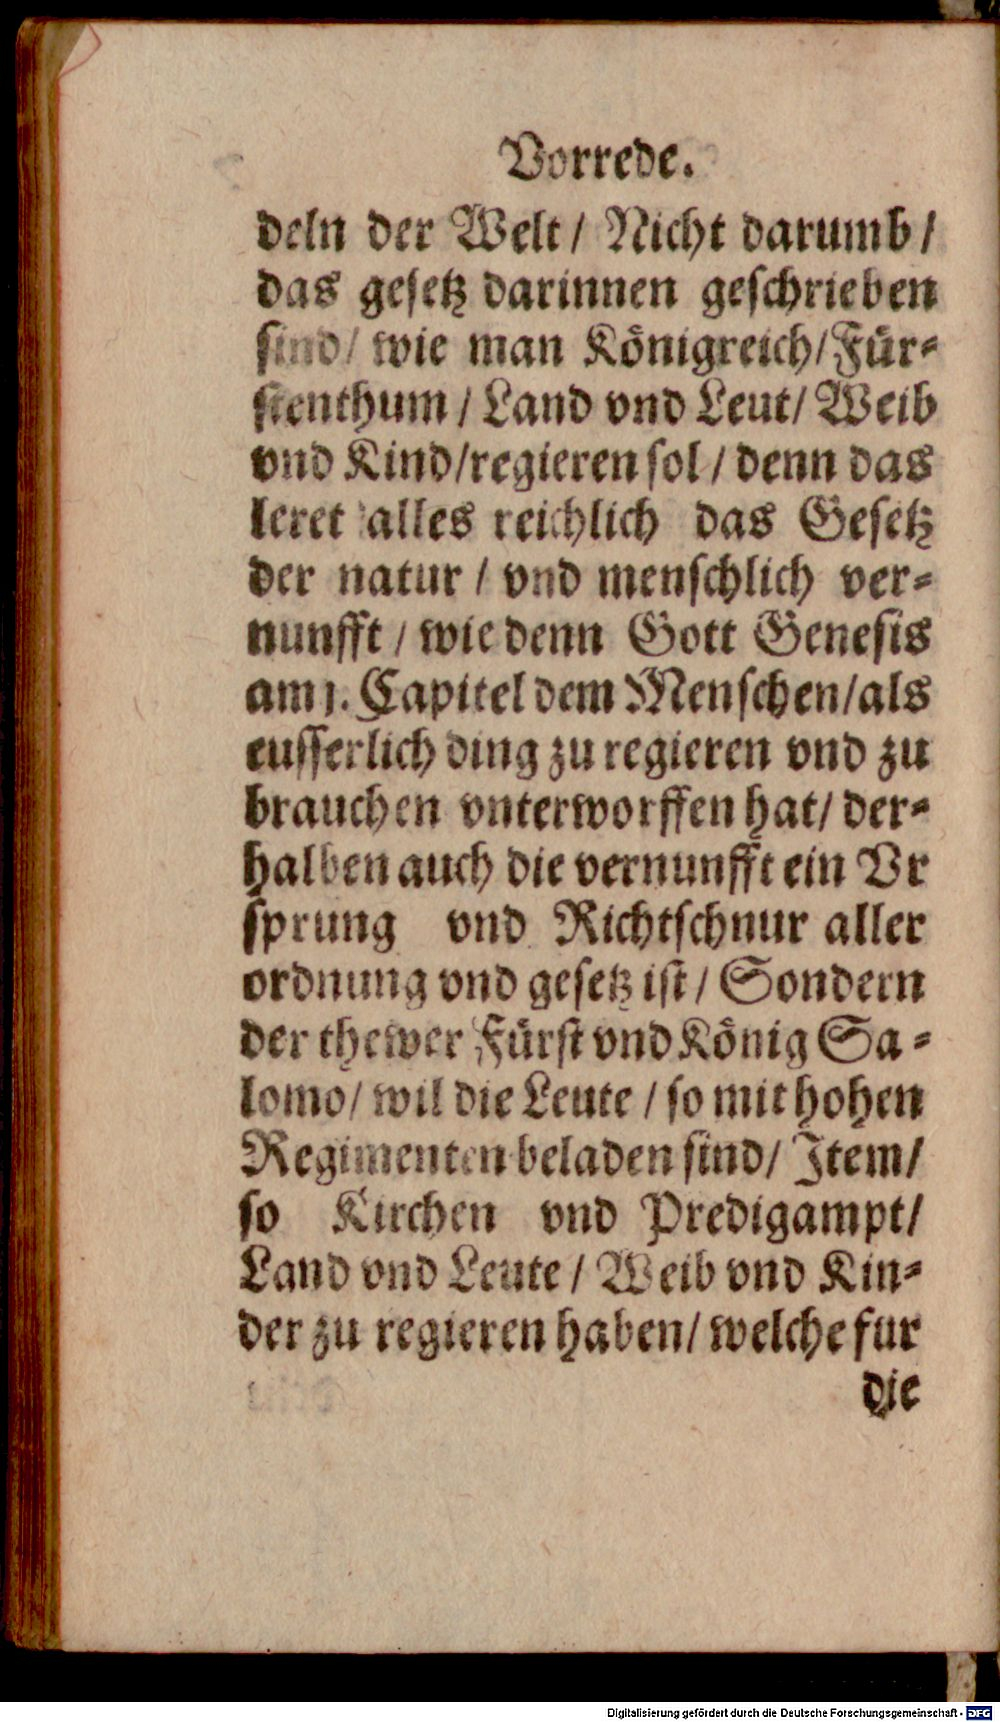 Vorrede.
deln der Welt / Nicht darumb /
das gesetz darinnen geschrieben
sind / wie man Königreich / Für-
stenthum / Land vnd Leut / Weib
vnd Kind / regieren sol / denn das
leret alles reichlich das Gesetz
der natur / vnd menschlich ver-
nunfft / wie denn Gott Genesis
am 1. Capitel dem Menschen / als
eusserlich ding zu regieren vnd zu
brauchen vnterworffen hat / der-
halben auch die vernunfft ein Vr
sprung vnd Richtschnur aller
ordnung vnd gesetz ist / Sondern
der thewer Fürst vnd König Sa-
lomo / wil die Leute / so mit hohen
Regimenten beladen sind / Item /
so Kirchen vnd Predigampt /
Land vnd Leute / Weib vnd Kin-
der zu regieren haben / welche fur
die
Digitalisierung gefördert durch die Deutsche Forschungsgemeinschaft - DFG